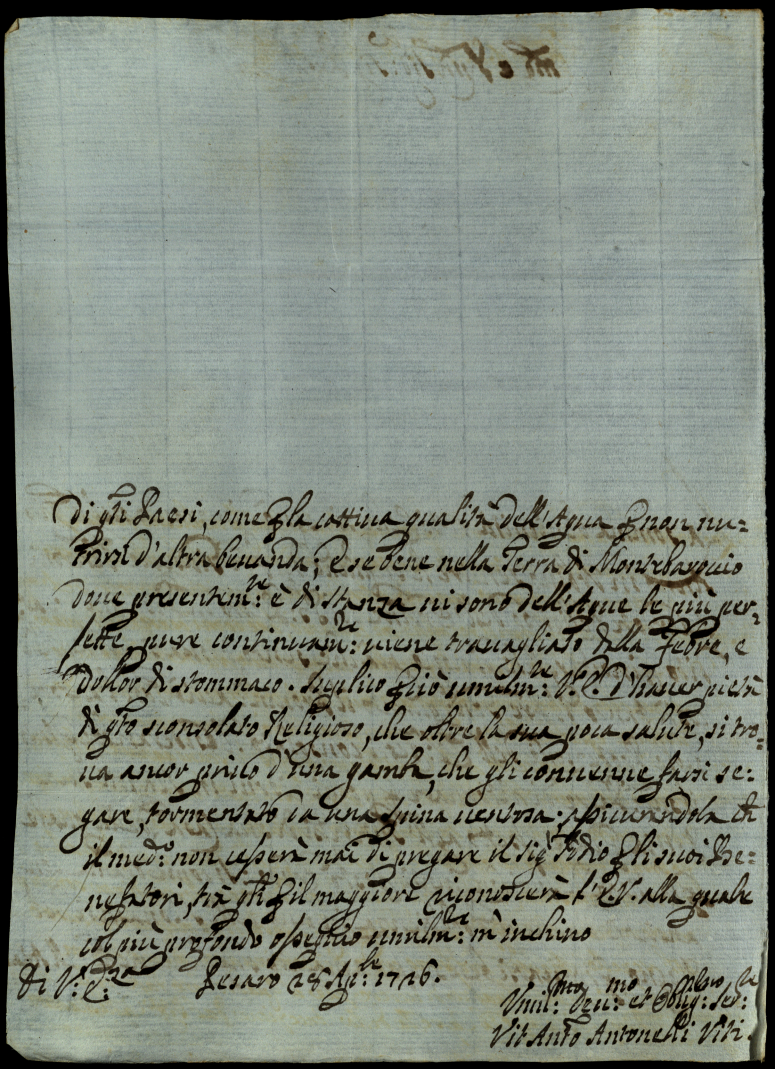 di q.ti Paesi, come p la cattiua qualità dell'Aqua p non nu=
trirsi d'altra beuanda; E se bene nella Terra di Montebaroccio
doue presentem.te è di stanza ui sono dell'Aque le più per=
fette, pure continuam.te uiene trauagliato dalla Febre, e
dollor di stommaco. Suplico p ciò umilm.te V.P. d'hauer pietà
di q.to sconsolato Religioso, che oltre la sua poca salute, si tro=
ua ancor priuo d'una gamba, che gli conuenne farsi se=
gare, tormentato da una spina uentosa; assicurandola ch
il med.o non cesserà mai di pregare il Sig.e Iddio p li suoi Be=
nefatori, trà q.ti p il maggiore riconoscerà l'P.V. alla quale
col più profondo ossequio umilm.te m'inchino
Di V.P.za Pesaro 28 Ap.le 1726.
Umil.mo deu.mo et Oblig.mo Ser.re
Vit Ant.o Antonelli Viti.